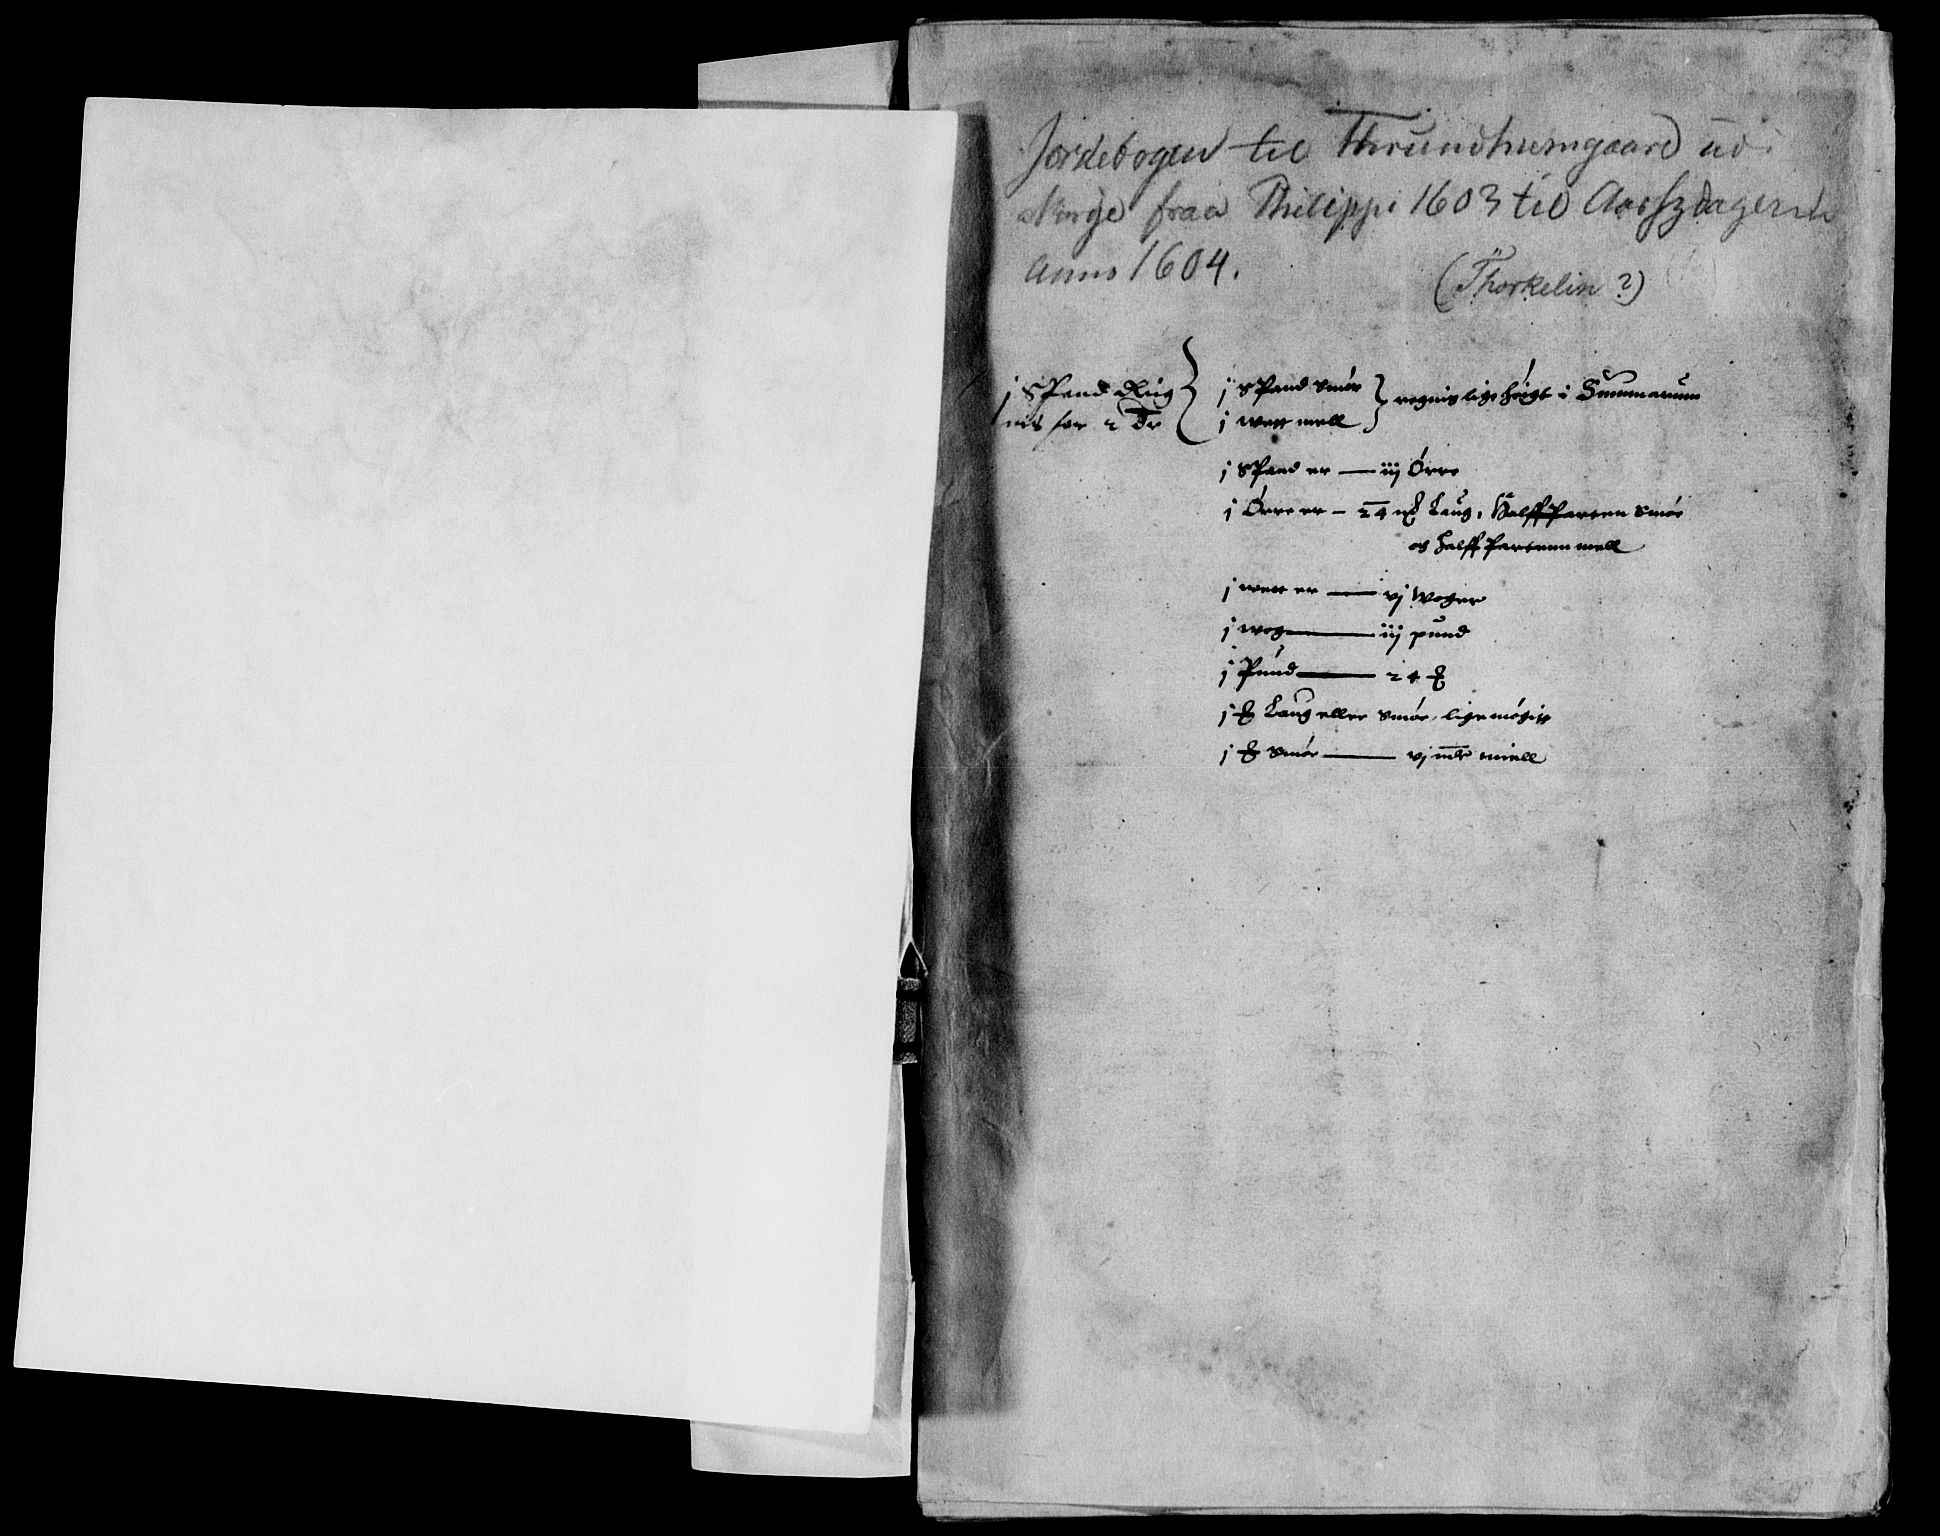 Jordebogen til Thrundhiemgaard udi
Norge fraa Philippi 1603 til Aarszdagenn
Anno 1604.
(Thorkelin ?)
j Spand Rug
j Spand Smør
regnis lige høigt i Summarum
j wett mell
j Spand er — iij Ørre
j Ørre er — 24 Laug, Halffparten Smør
och halffparten mell
j wett er — vj woger
j wog — iij pund
j Pund — 24 ℔
j ℔ Laug eller Smør, lige møgit
j ℔ Smør — vj miell